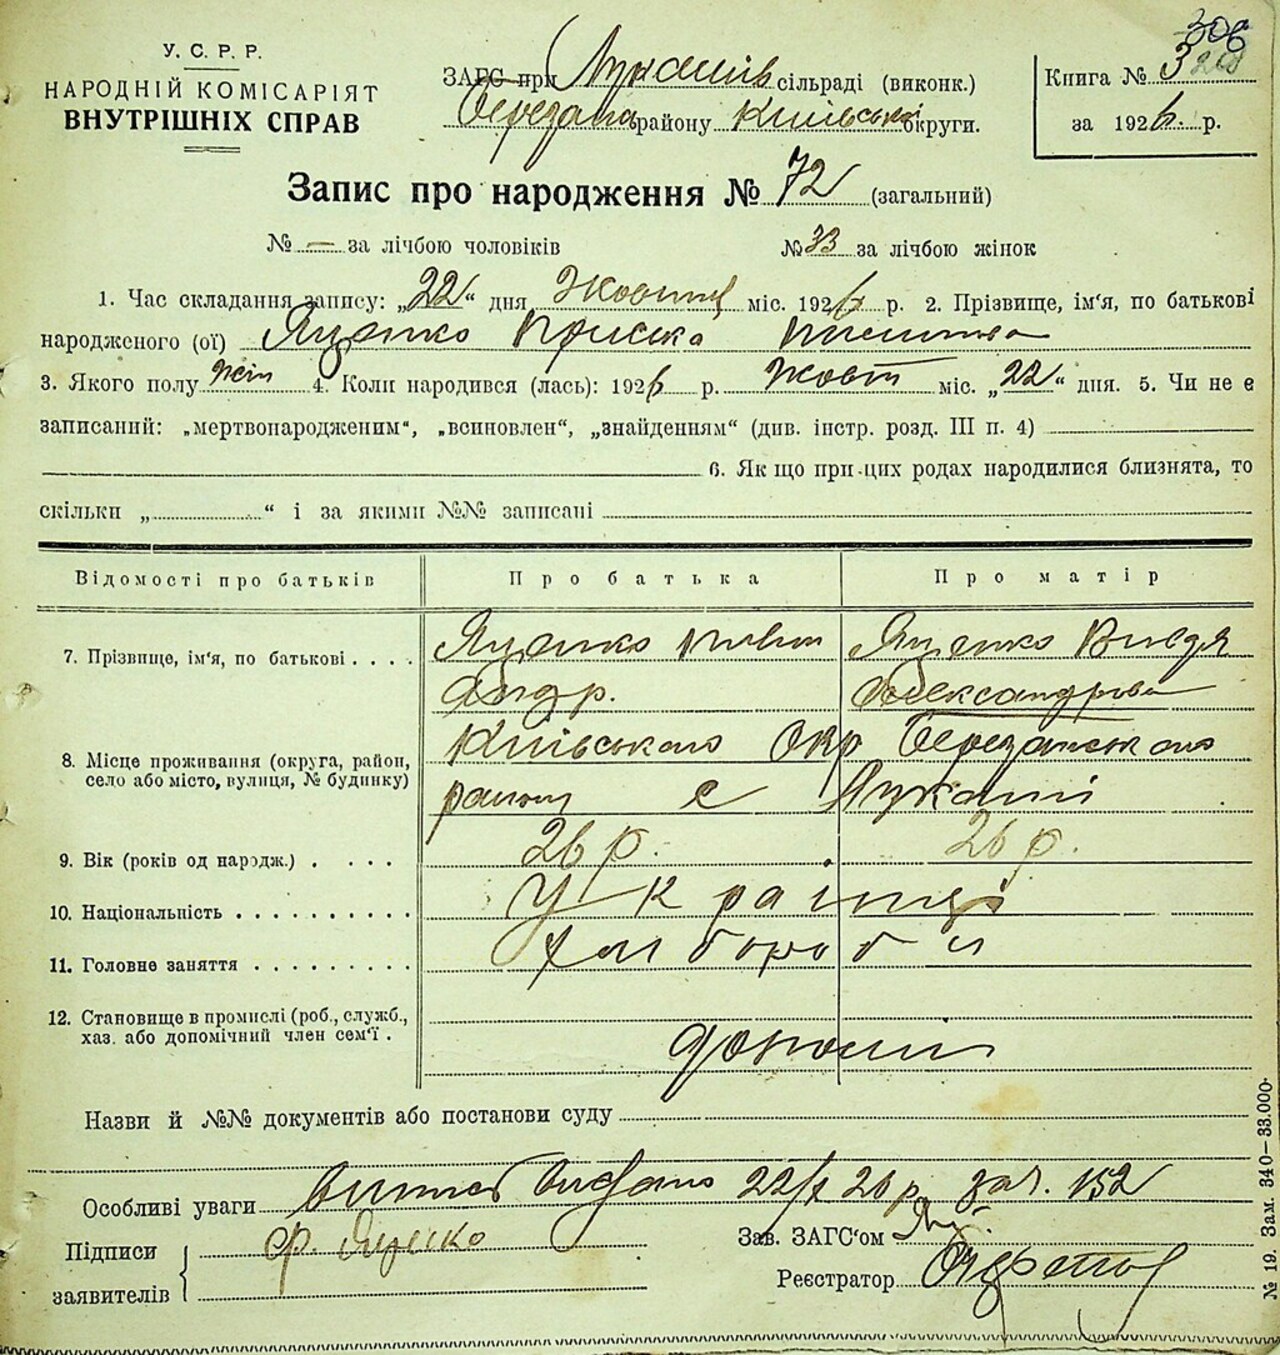 У. С. Р. Р.
НАРОДНІЙ КОМІСАРІЯТ
ВНУТРІШНІХ СПРАВ
ЗАГС при Лукашів сільраді (виконк.)
Березань району Київської округи.
Книга № 3
за 1926 р.
306
Запис про народження № 72 (загальний)
№ — за лічбою чоловіків № 33 за лічбою жінок
1. Час складання запису: „22“ дня Жовтня міс. 1926 р. 2. Прізвище, ім'я, по батькові
народженого (ої) Яценко Приська
3. Якого полу жін 4. Коли народився (лась): 1926 р. Жовт міс. „22“ дня. 5. Чи не є
записаний: „мертвонародженим“, „всиновлен“, „знайденням“ (див. інстр. розд. III п. 4)
6. Як що при цих родах народилися близнята, то
скільки „ “ і за якими №№ записані
Відомості про батьків Про батька Про матір
7. Прізвище, ім'я, по батькові . . . . Яценко Яценко
Андр. Олександрова
8. Місце проживання (округа, район,
село або місто, вулиця, № будинку)
Київського Окр Березанського
району с Лукаші
9. Вік (років од народж.) . . . . 26 р. 26 р.
10. Національність . . . . . . . . . . Українці
11. Головне заняття . . . . . . . . . Хліборо би
12. Становище в промислі (роб., служб.,
хаз. або допомічний член сем'ї .
Назви й №№ документів або постанови суду
Особливі уваги Витяг видано 22/X 26 р. за ч. 152
Підписи
заявителів
Яценко
Зав. ЗАГС'ом
Реєстратор
№ 19. Зам. 340—33.000.